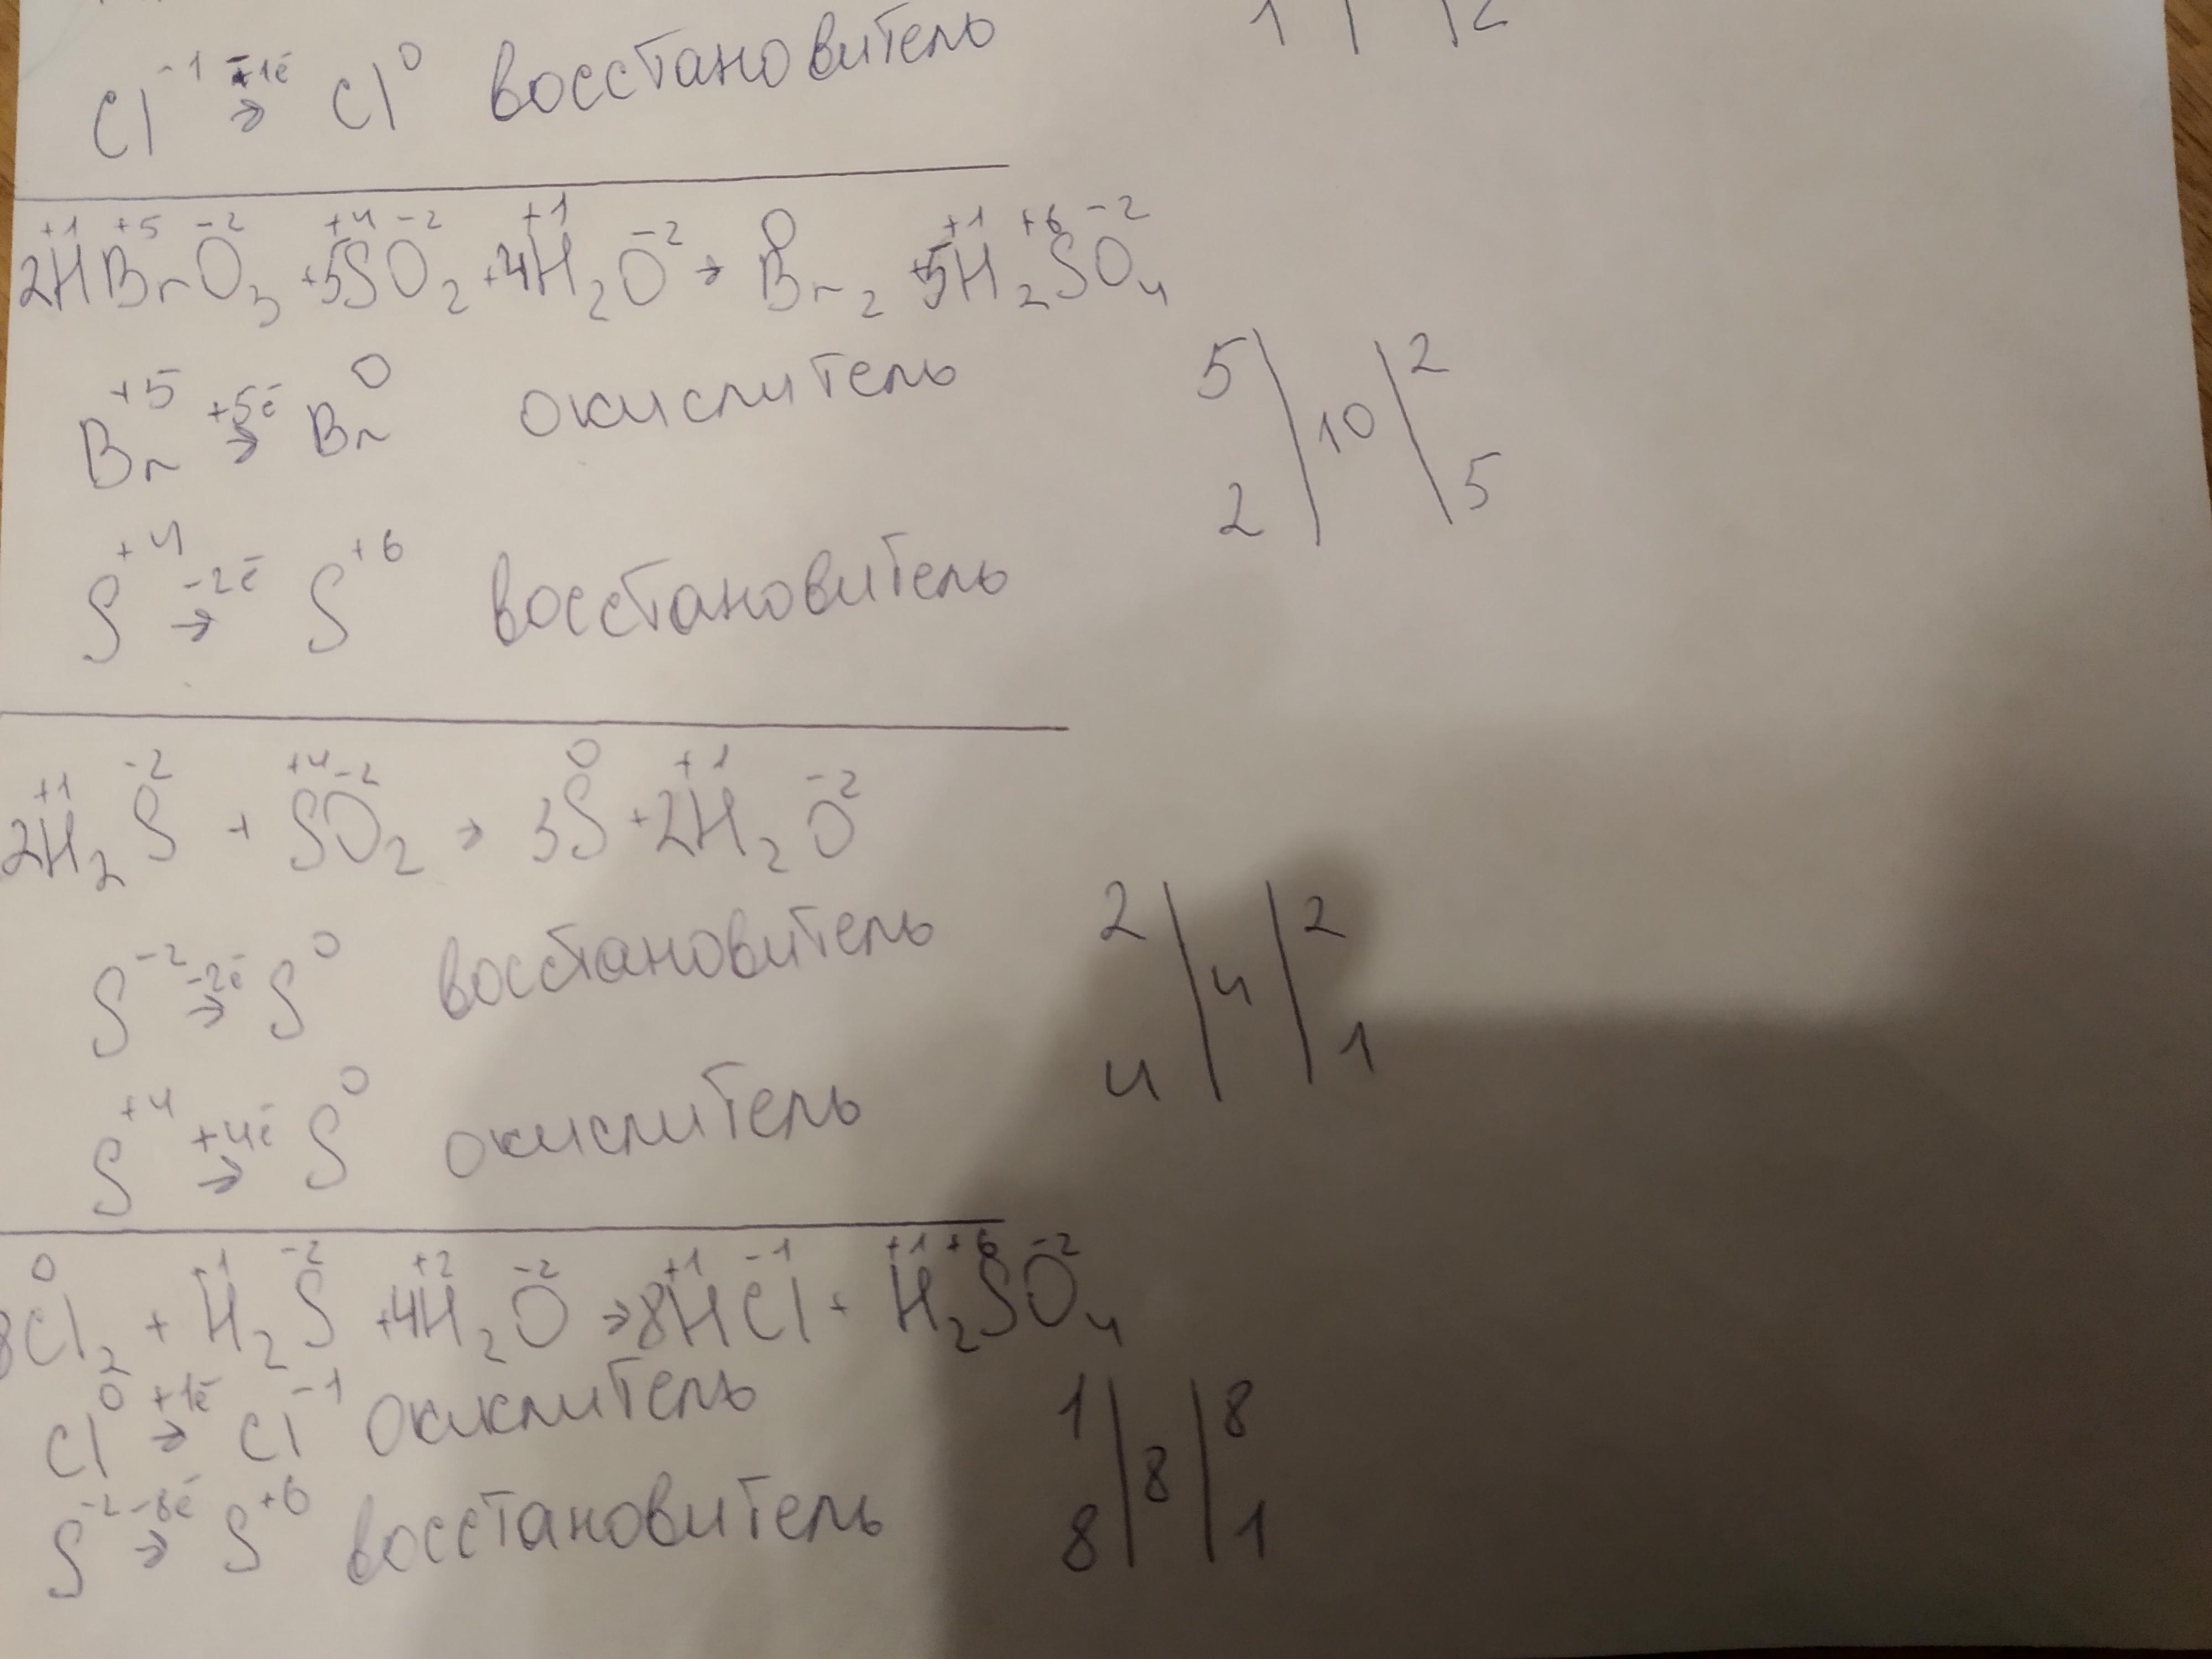 Cl⁻¹ -1ē→ Cl⁰ восстановитель
2H⁺¹Br⁺⁵O₃⁻² + 5S⁺⁴O₂⁻² + 4H₂⁺¹O⁻² → Br₂⁰ + 5H₂⁺¹S⁺⁶O₄⁻²
Br⁺⁵ +5ē→ Br⁰ окислитель 5 | 10 | 2
S⁺⁴ -2ē→ S⁺⁶ восстановитель 2 | | 5
2H₂⁺¹S⁻² + S⁺⁴O₂⁻² → 3S⁰ + 2H₂⁺¹O⁻²
S⁻² -2ē→ S⁰ восстановитель 2 | 4 | 2
S⁺⁴ +4ē→ S⁰ окислитель 4 | | 1
8Cl₂⁰ + H₂⁺¹S⁻² + 4H₂⁺²O⁻² → 8H⁺¹Cl⁻¹ + H₂⁺¹S⁺⁶O₄⁻²
Cl⁰ +1ē→ Cl⁻¹ окислитель 1 | 8 | 8
S⁻² -8ē→ S⁺⁶ восстановитель 8 | | 1